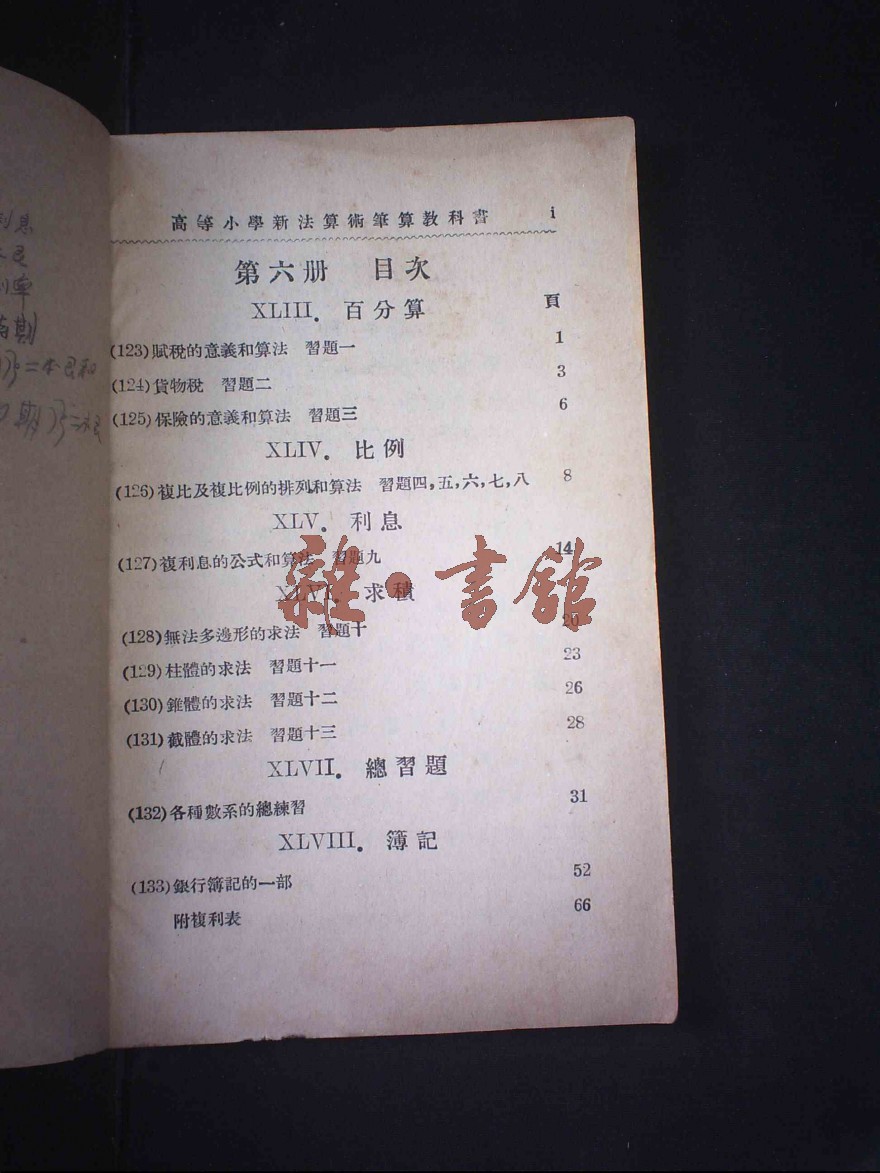 高等小學新法算術筆算教科書 i
第六册 目次
XLIII. 百分算 頁
(123)賦稅的意義和算法 習題一 1
(124)貨物稅 習題二 3
(125)保險的意義和算法 習題三 6
XLIV. 比例
(126)複比及複比例的排列和算法 習題四,五,六,七,八 8
XLV. 利息
(127)複利息的公式和算法 習題九 14
XLVI. 求積
(128)無法多邊形的求法 習題十 20
(129)柱體的求法 習題十一 23
(130)錐體的求法 習題十二 26
(131)截體的求法 習題十三 28
XLVII. 總習題
(132)各種數系的總練習 31
XLVIII. 簿記
(133)銀行簿記的一部 52
附複利表 66
雜·書館
利息